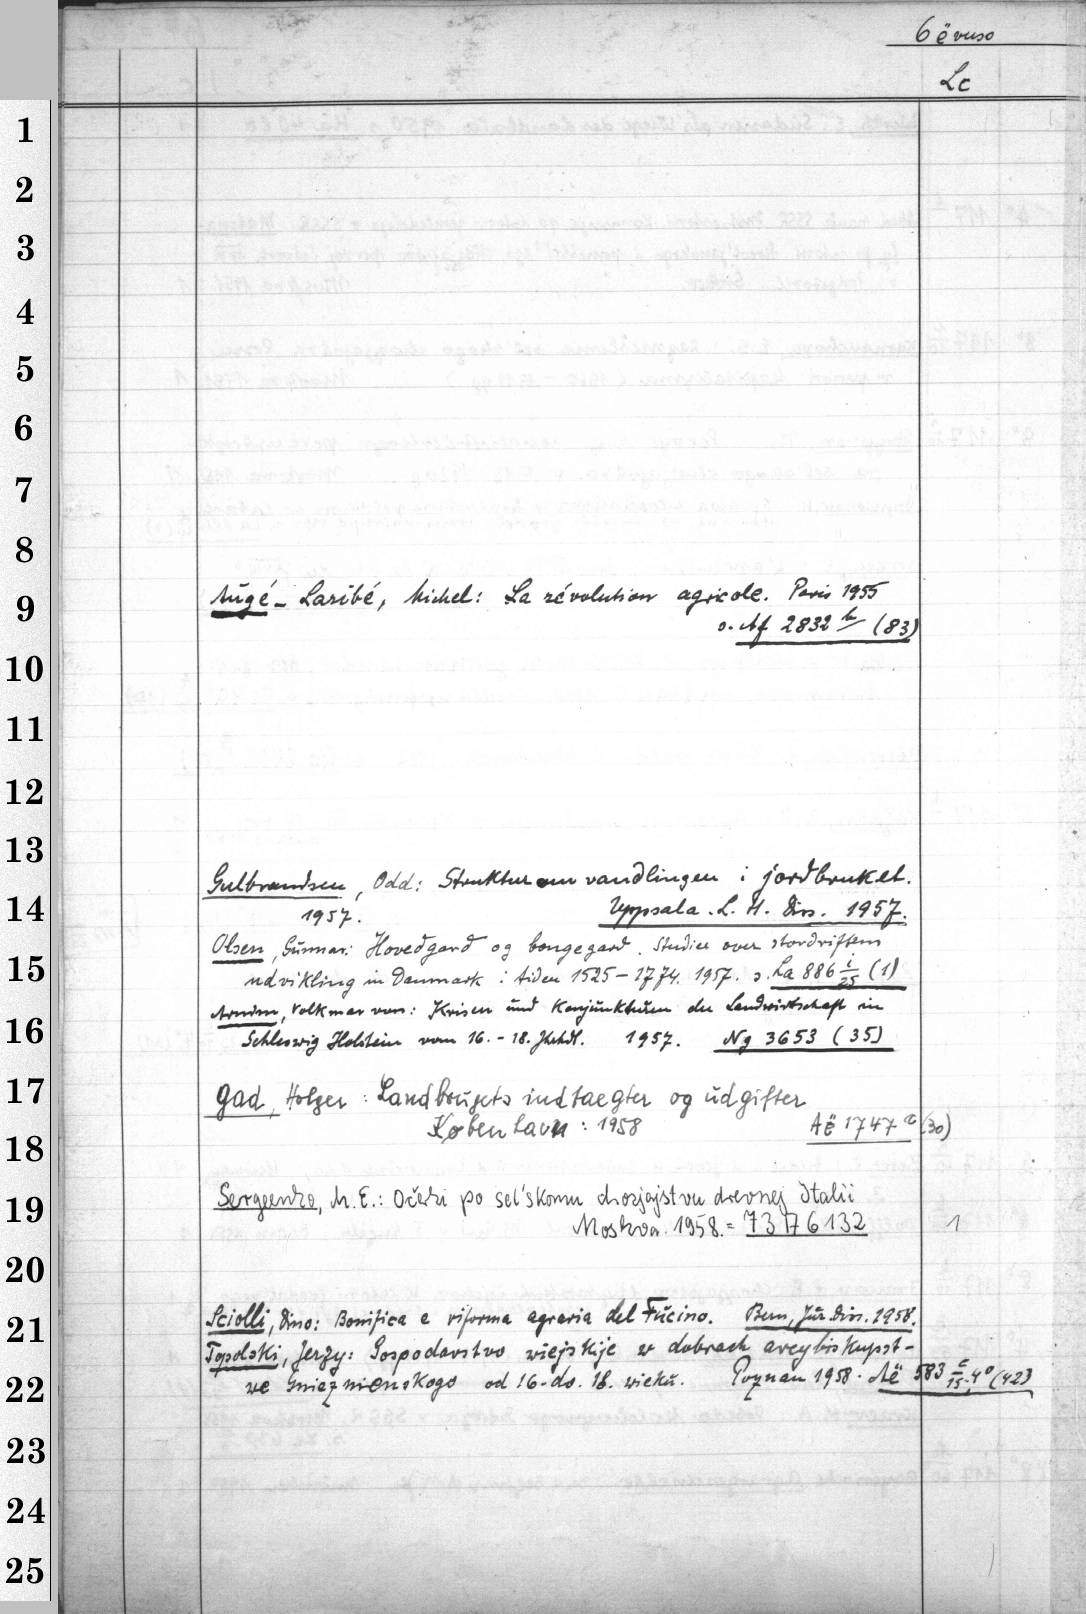 6 ë verso
Lc
1
2
3
4
5
6
7
8
9
10
11
12
13
14
15
16
17
18
19
20
21
22
23
24
25
Augé-Laribé, Michel: La révolution agricole. Paris 1955
s. Af 2832 b (83)
Gulbrandsen, Odd: Strukturomvandlingen i jordbruket.
1957. Uppsala. L. H. Diss. 1957.
Olsen, Gunnar: Hovedgard og bongegard. Studier over stordriftens
udvikling in Danmark i tiden 1525-1774. 1957. s. La 886 i/25 (1)
Arnim, Volkmar von: Krisen und Konjunkturen der Landwirtschaft in
Schleswig Holstein vom 16.-18. Jhrhdt. 1957. Ng 3653 (35)
Gad, Holger: Landbrugets indtaegter og udgifter
København: 1958 Aë 1747 a (30)
Sergeenko, M.E.: Očerki po sel'skomu chozjajstvu drevnej Italii
Moskva. 1958. = 73 176132 1
Sciolli, Dino: Bonifica e riforma agraria del Fucino. Bern, Jur. Diss. 1958.
Topolski, Jerzy: Gospodarstvo wiejskije w dobrach arcybiskupst-
we Gnieznienskogo od 16-do. 18. wieku. Poznan 1958. Aë 583 c/15.4° (42)